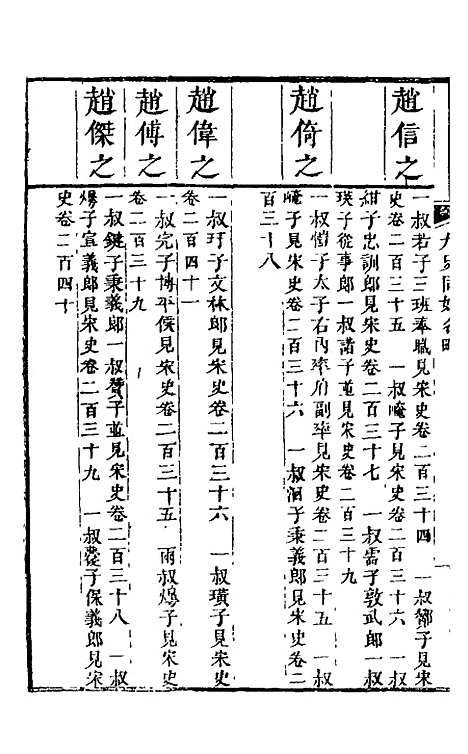 趙信之
一叔若子三班奉職見宋史卷二百三十四 一叔鄮子見宋
史卷二百三十五 一叔崦子見宋史卷二百三十六 一叔
紺子忠訓郎見宋史卷二百三十七 一叔霱子敦武郎一叔
瑛子從事郎一叔諸子並見宋史卷二百三十九
趙倚之
一叔愭子太子右內率府副率見宋史卷二百三十五 一叔
崦子見宋史卷二百三十六 一叔洄子秉義郎見宋史卷二
百三十八
趙偉之
一叔玗子文林郎見宋史卷二百三十六 一叔璜子見宋史
卷二百四十一
趙傅之
一叔完子博平侯見宋史卷二百三十五 一叔煬子見宋史
卷二百三十九
趙傑之
一叔鍵子秉義郎一叔贊子並見宋史卷二百三十八 一叔
煬子宣義郎見宋史卷二百三十九 一叔褭子保義郎見宋
史卷二百四十